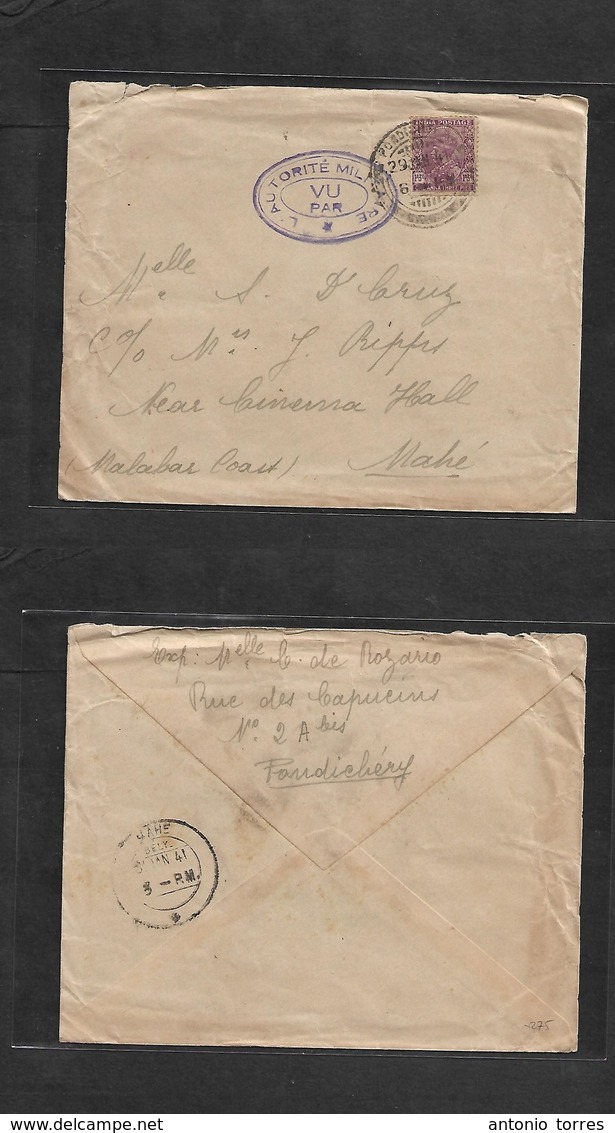 INDIA POSTAGE
PONDICHERY
29 JAN 41
L'AUTORITÉ MILITAIRE
VU
PAR
Melle S. D'Cruz
c/o Mrs J. Ripps
Near Cinema Hall
(Malabar Coast) Mahé
Exp: Melle C. de Rozario
Rue des Capucins
No. 2 A bis
Pondichéry
MAHE
DELY.
JAN 41
3 - P.M.
275
antonio torres